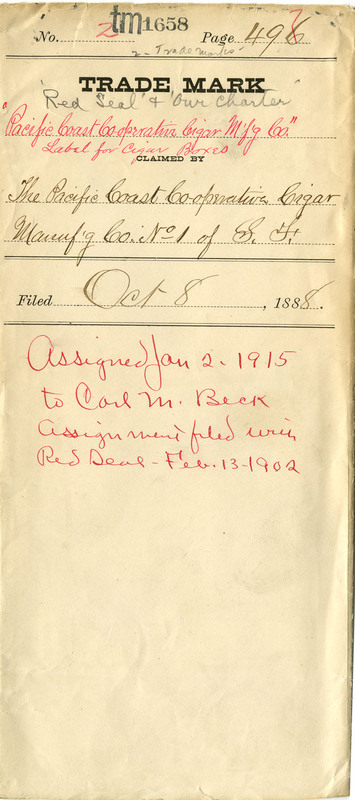 No. 2 tm1658 Page 496 7
2 - Trade marks
TRADE MARK
"Red Seal & Our Charter"
"Pacific Coast Co-operative Cigar M'f'g Co."
Label for Cigar Boxes
CLAIMED BY
The Pacific Coast Co-operative Cigar
Manuf'g Co. No 1 of S. F.
Filed Oct 8, 1888.
Assigned Jan 2 - 1915
to Carl M. Beck
Assignment filed with
Red Seal - Feb. 13 - 1902